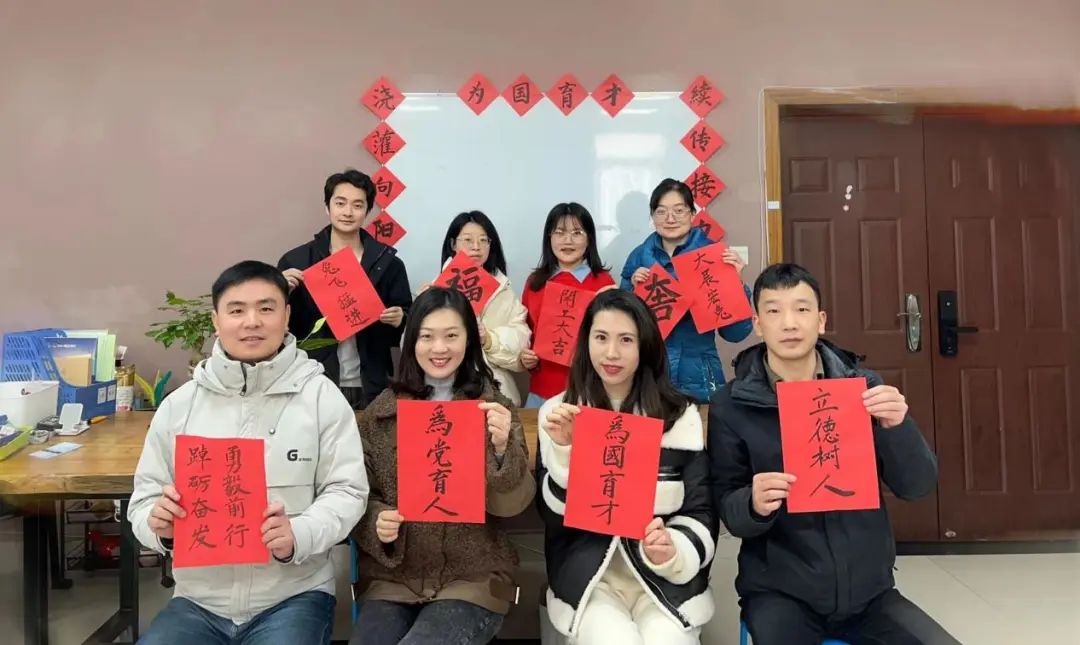 为国育才
浇灌向阳
续传接力
兔飞猛进
福
開工大吉
大展宏兔
勇毅前行
踔砺奋发
為党育人
為國育才
立德树人
G